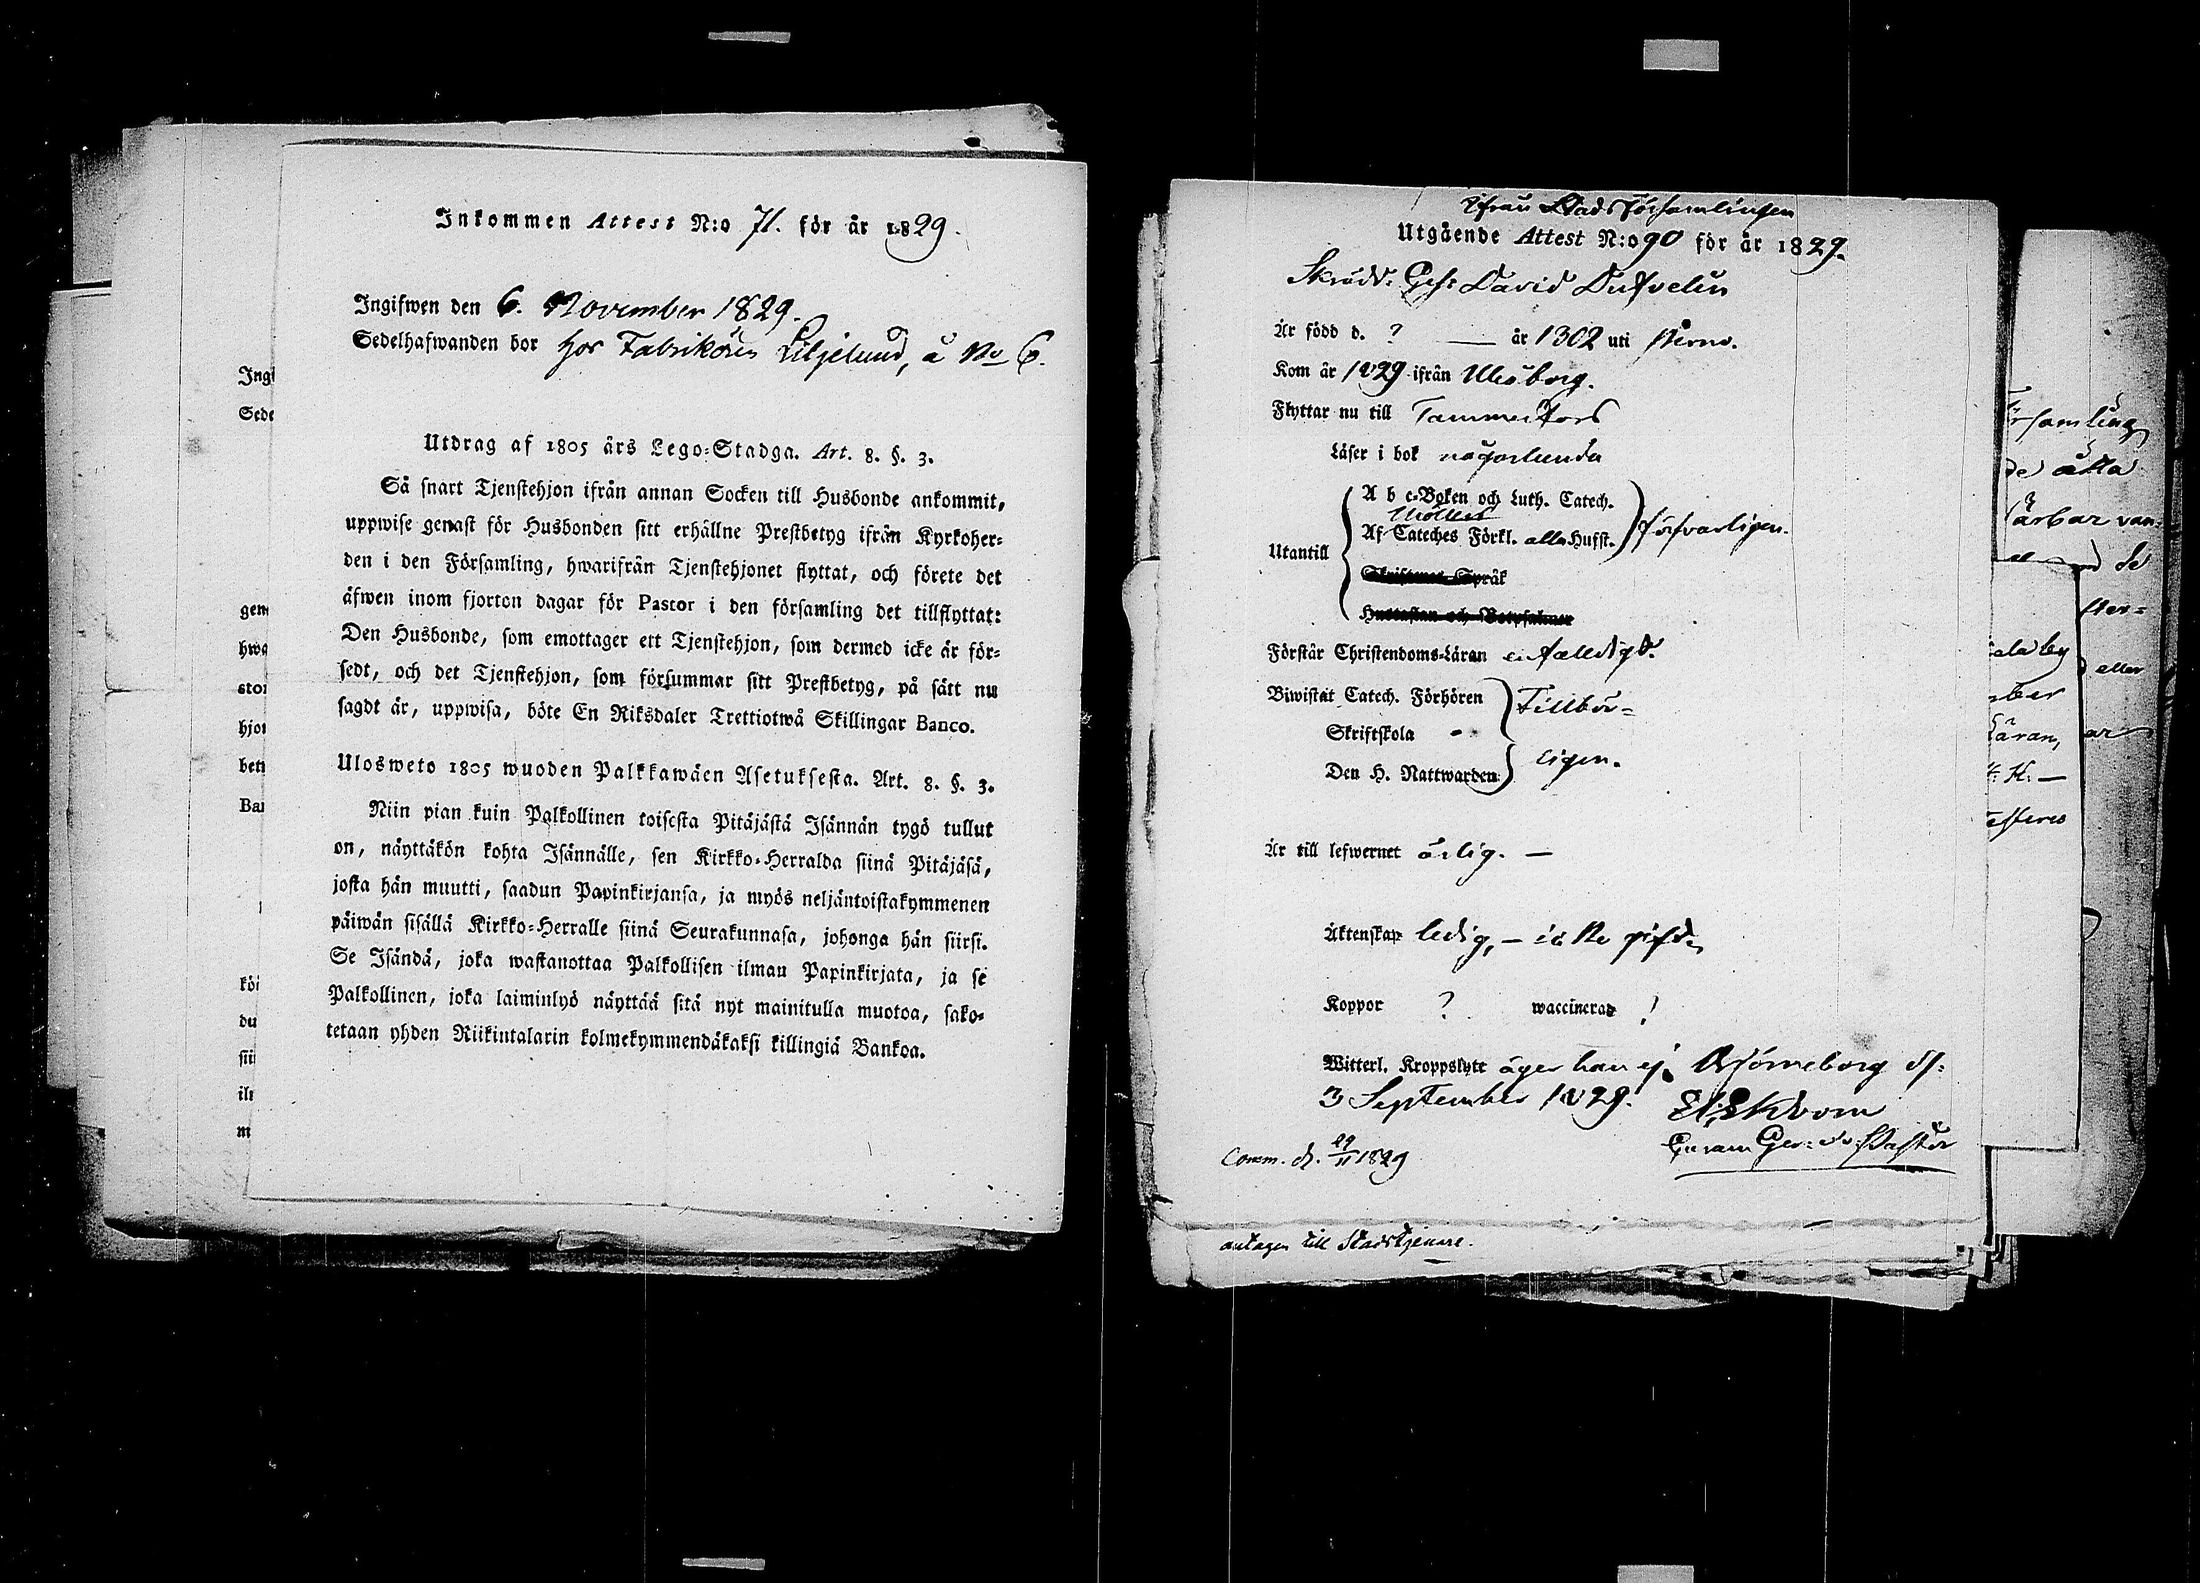 Inkommen Attest N:o 71. för år 1829.
Ingifwen den 6. November 1829.
Sedelhafwanden bor hos Fabrikören Liljelund, å No 6.
Utdrag af 1805 års Lego-Stadga. Art. 8. §. 3.
Så snart Tjenstehjon ifrån annan Socken till Husbonde ankommit,
uppwise genast för Husbonden sitt erhållne Prestbetyg ifrån Kyrkoher-
den i den Församling, hwarifrån Tjenstehjonet flyttat, och förete det
äfwen inom fjorton dagar för Pastor i den församling det tillflyttat:
Den Husbonde, som emottager ett Tjenstehjon, som dermed icke är för-
sedt, och det Tjenstehjon, som försummar sitt Prestbetyg, på sätt nu
sagdt är, uppwisa, böte En Riksdaler Trettiotwå Skillingar Banco.
Ulosweto 1805 wuoden Palkkawäen Asetuksesta. Art. 8. §. 3.
Niin pian kuin Palkollinen toisesta Pitäjästä Isännän tygö tullut
on, näyttäkön kohta Isännälle, sen Kirkko-Herralda siinä Pitäjäsä,
josta hän muutti, saadun Papinkirjansa, ja myös neljäntoistakymmenen
päiwän sisällä Kirkko-Herralle siinä Seurakunnasa, johonga hän siirsi.
Se Isändä, joka wastanottaa Palkollisen ilman Papinkirjata, ja se
Palkollinen, joka laiminlyö näyttää sitä nyt mainitulla muotoa, sako-
tetaan yhden Riikintalarin kolmekymmendäkaksi killingiä Bankoa.
Ingi
Sede
gen
hwa
stor
hjor
bety
Ban
köi
du
sii
iln
m
ifrån Stadsförsamlingen
Utgående Attest N:o 90 för år 1829.
Skrädd: Ges: David Dufvelin
Är född d. ? — år 1802 uti Perno.
Kom år 1829 ifrån Uleåborg.
Flyttar nu till Tammerfors
Läser i bok någorlunda
Utantill
A b c-Boken och Luth. Catech.
Af Cateches Förkl. alla Hufst. försvarligen.
Skriftenes Språk
Hustaflan och Botpsalmer
Förstår Christendoms-Läran enfaldigt.
Biwistat Catech. Förhören Tillbör-
Skriftskola
Den H. Nattwarden ligen.
Är till lefwernet ärlig. —
Äktenskap ledig, — icke gift.
Koppor ? waccinerad !
Witterl. Kroppslyte äger han ej. Björneborg d.
3 September 1829.
Comm. d. 29/11 1829
antagen till Stadstjenare.
församling
de åtta
ärbar van-
de
ala by
eller
äran,